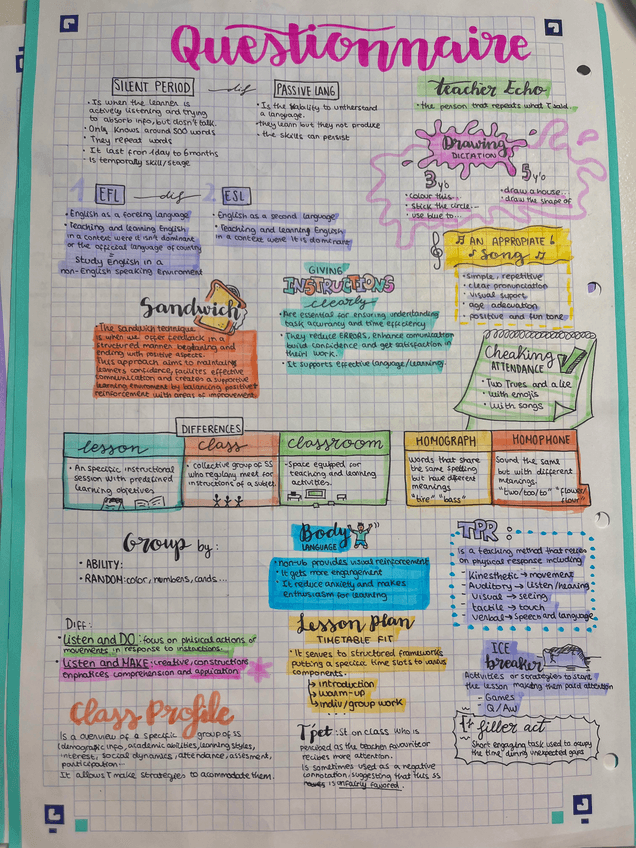 Questionnaire
SILENT PERIOD
dif
PASSIVE LANG
· Is when the learner is
actively listening and trying
to absorb info, but doesn't talk.
· Only knows around 500 words
· They repeat words
· It last from 1 day to 6 months
· Is temporally skill/stage
· Is the ability to understand
a language.
· they learn but they not produce
· the skills can persist
teacher Echo
· the person that repeats what T said
Drawing
DICTATION
3 y/o
· colour this...
· stick the circle...
· use blue to...
5 y/o
· draw a house...
· draw the shape of
1 EFL
dif
2 ESL
· English as a foreing language
· Teaching and learning English
in a context were it isn't dominant
or the official language of country
Study English in a
non-English speaking enviroment
· English as a second language
· Teaching and learning English
in a context were it is dominant
AN APPROPIATE
Song
· simple, repetitive
· clear pronunciation
· visual suport
· age adecuation
· positive and fun tone
Sandwich
· The sandwich technique
is when we offer feedback in a
structured manner, beginning and
ending with positive aspects.
This approach aims to maintain
learners confidence, facilitates effective
communication and creates a supportive
learning enviroment by balancing positive
reinforcement with areas of improvement.
GIVING
INSTRUCTIONS
clearly
· Are essential for ensuring understanding
task accurancy and time efficiency
· They reduce ERRORS, enhance comunication
build confidence and get satisfaction in
their work.
· It supports effective language/learning.
Cheaking
ATTENDANCE
· Two Trues and a lie
· With emojis
· With songs
DIFFERENCES
lesson
· An specific instructional
session with predefined
learning objetives
class
· collective group of SS
who regulary meet for
instructions of a subject.
classroom
· Space equiped for
teaching and learning
activities.
HOMOGRAPH
words that share
the same spelling
but have diferent
meanings
"tire" "bass"
HOMOPHONE
Sound the same
but with different
meanings.
"two/too/to" "flower/
flour"
Group by:
· ABILITY:
· RANDOM: color, numbers, cards...
Body
LANGUAGE
· non-vb provides visual reinforcement
· It gets more engagement
· It reduce anxiety and makes
enthusiasm for learning
TPR:
Is a teaching method that relies
on physical response including
Kinesthetic → movement
Auditory → listen/hearing
visual → seeing
tactile → touch
verbal → speech and language
Diff:
· Listen and DO: focus on phisical actions or
movements in response to instructions.
· Listen and MAKE: creative, constructions
enphatices comprehension and application
Lesson Plan
TIMETABLE FIT
· It serves to structured frameworks
putting a specific time slots to various
components.
→ introduction
→ warm-up
→ indiv/group work
ICE
breaker
Activities or strategies to start
the lesson making them paid attention
- Games
- Q/Aw
Class Profile
Is a overview of a specific group of SS
(demografic info, academic abilities, learning styles,
interest, social dynamics, attendance, assesment,
participation...
It allows T make strategies to acommodate them.
T'pet: St on class who is
percived as the teacher favourite or
recibes more attention.
Is sometimes used as a negative
connotation, suggesting that this SS
is unfairly favored.
filler act
Short engaging task used to occupy
the time during unexpected gaps